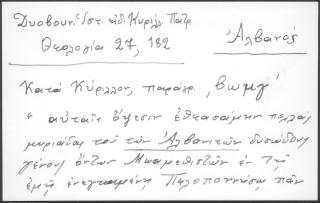 Δυοβουν. Ἱστ. εἰδ. Κυρίλλ. Πατρ.
Θεολογία 27, 182
Ἀλβανός
Κατὰ Κύριλλον, παράγρ. βωμγ΄
" αὐταῖς ὄψεσιν ἐθεασάμην πολλὰς
μυριάδας τοῦ τῶν Ἀλβανιτῶν δυσώδους
γένους ὄντων Μωαμεθιστῶν ἐν τῇ
ἐμῇ ἐνεγκαμένῃ Πελοποννήσῳ πᾶν